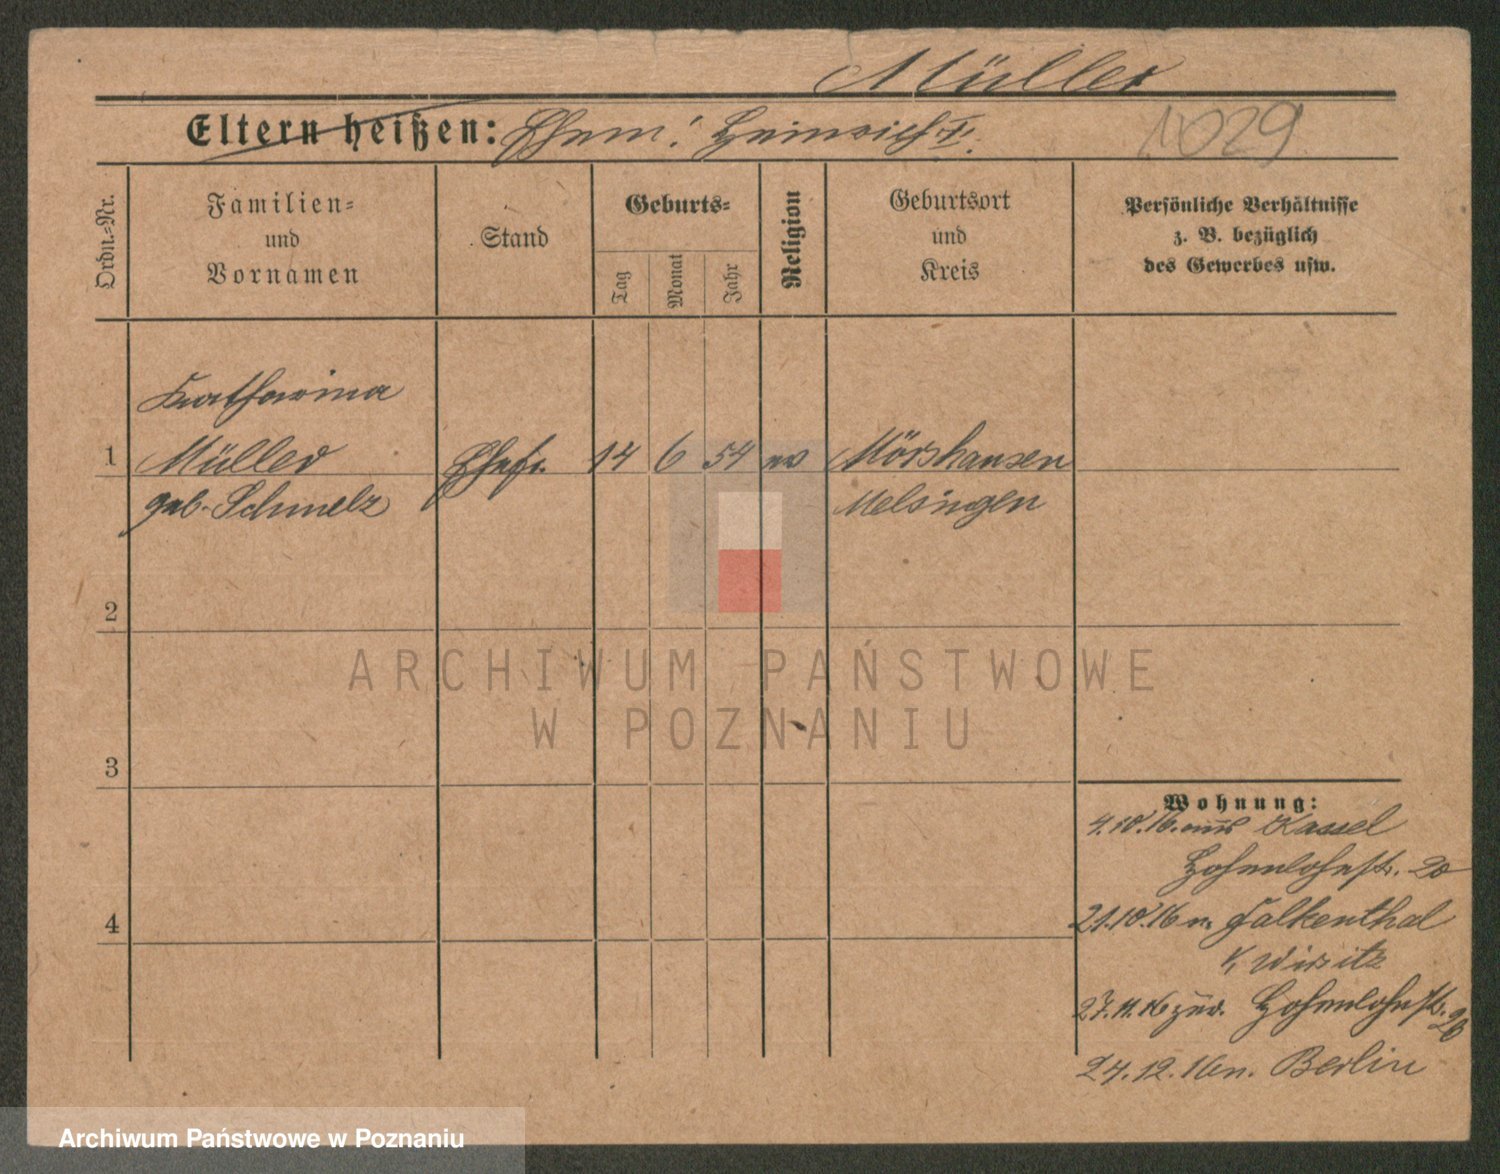 Müller
Eltern heißen: Ehem: Heinrich II.
1029
Ordn.-Nr.
Familien-
und
Vornamen
Stand
Geburts-
Tag
Monat
Jahr
Religion
Geburtsort
und
Kreis
Persönliche Verhältnisse
z. B. bezüglich
des Gewerbes usw.
Katharina
1 Müller Ehefr. 14 6 54 ev Mörshausen
geb. Schmelz Melsingen
2
ARCHIWUM PAŃSTWOWE
W POZNANIU
3
Wohnung:
4.10.16. aus Kassel
Hohenlohestr. 20
4
21.10.16 n. Falkenthal
K, Wirsitz
27.11.16 zur. Hohenlohestr. 20
24.12.16 n. Berlin
Archiwum Państwowe w Poznaniu